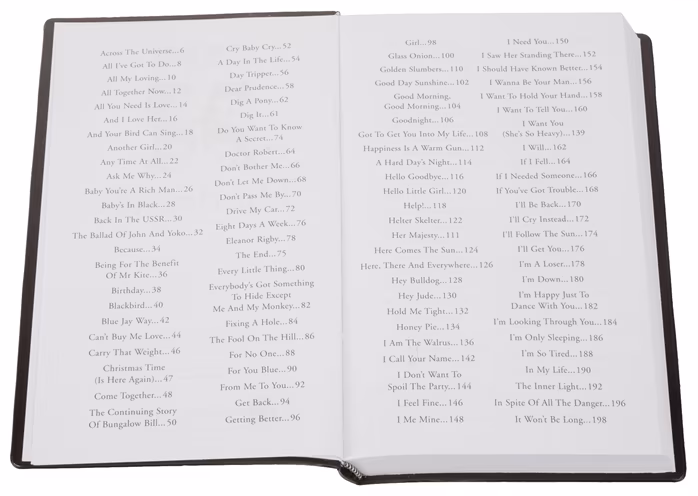 Across The Universe...6
All I've Got To Do...8
All My Loving...10
All Together Now...12
All You Need Is Love...14
And I Love Her...16
And Your Bird Can Sing...18
Another Girl...20
Any Time At All...22
Ask Me Why...24
Baby You're A Rich Man...26
Baby's In Black...28
Back In The USSR...30
The Ballad Of John And Yoko...32
Because...34
Being For The Benefit
Of Mr Kite...36
Birthday...38
Blackbird...40
Blue Jay Way...42
Can't Buy Me Love...44
Carry That Weight...46
Christmas Time
(Is Here Again)...47
Come Together...48
The Continuing Story
Of Bungalow Bill...50
Cry Baby Cry...52
A Day In The Life...54
Day Tripper...56
Dear Prudence...58
Dig A Pony...62
Dig It...61
Do You Want To Know
A Secret...74
Doctor Robert...64
Don't Bother Me...66
Don't Let Me Down...68
Don't Pass Me By...70
Drive My Car...72
Eight Days A Week...76
Eleanor Rigby...78
The End...75
Every Little Thing...80
Everybody's Got Something
To Hide Except
Me And My Monkey...82
Fixing A Hole...84
The Fool On The Hill...86
For No One...88
For You Blue...90
From Me To You...92
Get Back...94
Getting Better...96
Girl...98
Glass Onion...100
Golden Slumbers...110
Good Day Sunshine...102
Good Morning,
Good Morning...104
Goodnight...106
Got To Get You Into My Life...108
Happiness Is A Warm Gun...112
A Hard Day's Night...114
Hello Goodbye...116
Hello Little Girl...120
Help!...118
Helter Skelter...122
Her Majesty...111
Here Comes The Sun...124
Here, There And Everywhere...126
Hey Bulldog...128
Hey Jude...130
Hold Me Tight...132
Honey Pie...134
I Am The Walrus...136
I Call Your Name...142
I Don't Want To
Spoil The Party...144
I Feel Fine...146
I Me Mine...148
I Need You...150
I Saw Her Standing There...152
I Should Have Known Better...154
I Wanna Be Your Man...156
I Want To Hold Your Hand...158
I Want To Tell You...160
I Want You
(She's So Heavy)...139
I Will...162
If I Fell...164
If I Needed Someone...166
If You've Got Trouble...168
I'll Be Back...170
I'll Cry Instead...172
I'll Follow The Sun...174
I'll Get You...176
I'm A Loser...178
I'm Down...180
I'm Happy Just To
Dance With You...182
I'm Looking Through You...184
I'm Only Sleeping...186
I'm So Tired...188
In My Life...190
The Inner Light...192
In Spite Of All The Danger...196
It Won't Be Long...198